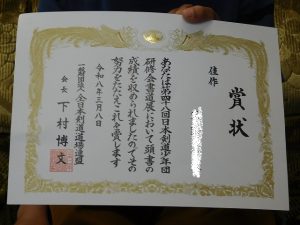 賞状
佳作
あなたは第四十八回日本剣道少年団
研修会書道展において頭書の
成績を収められましたのでその
努力をたたえこれを賞します
令和八年三月八日
一般財団法人全日本剣道道場連盟
会長 下村博文